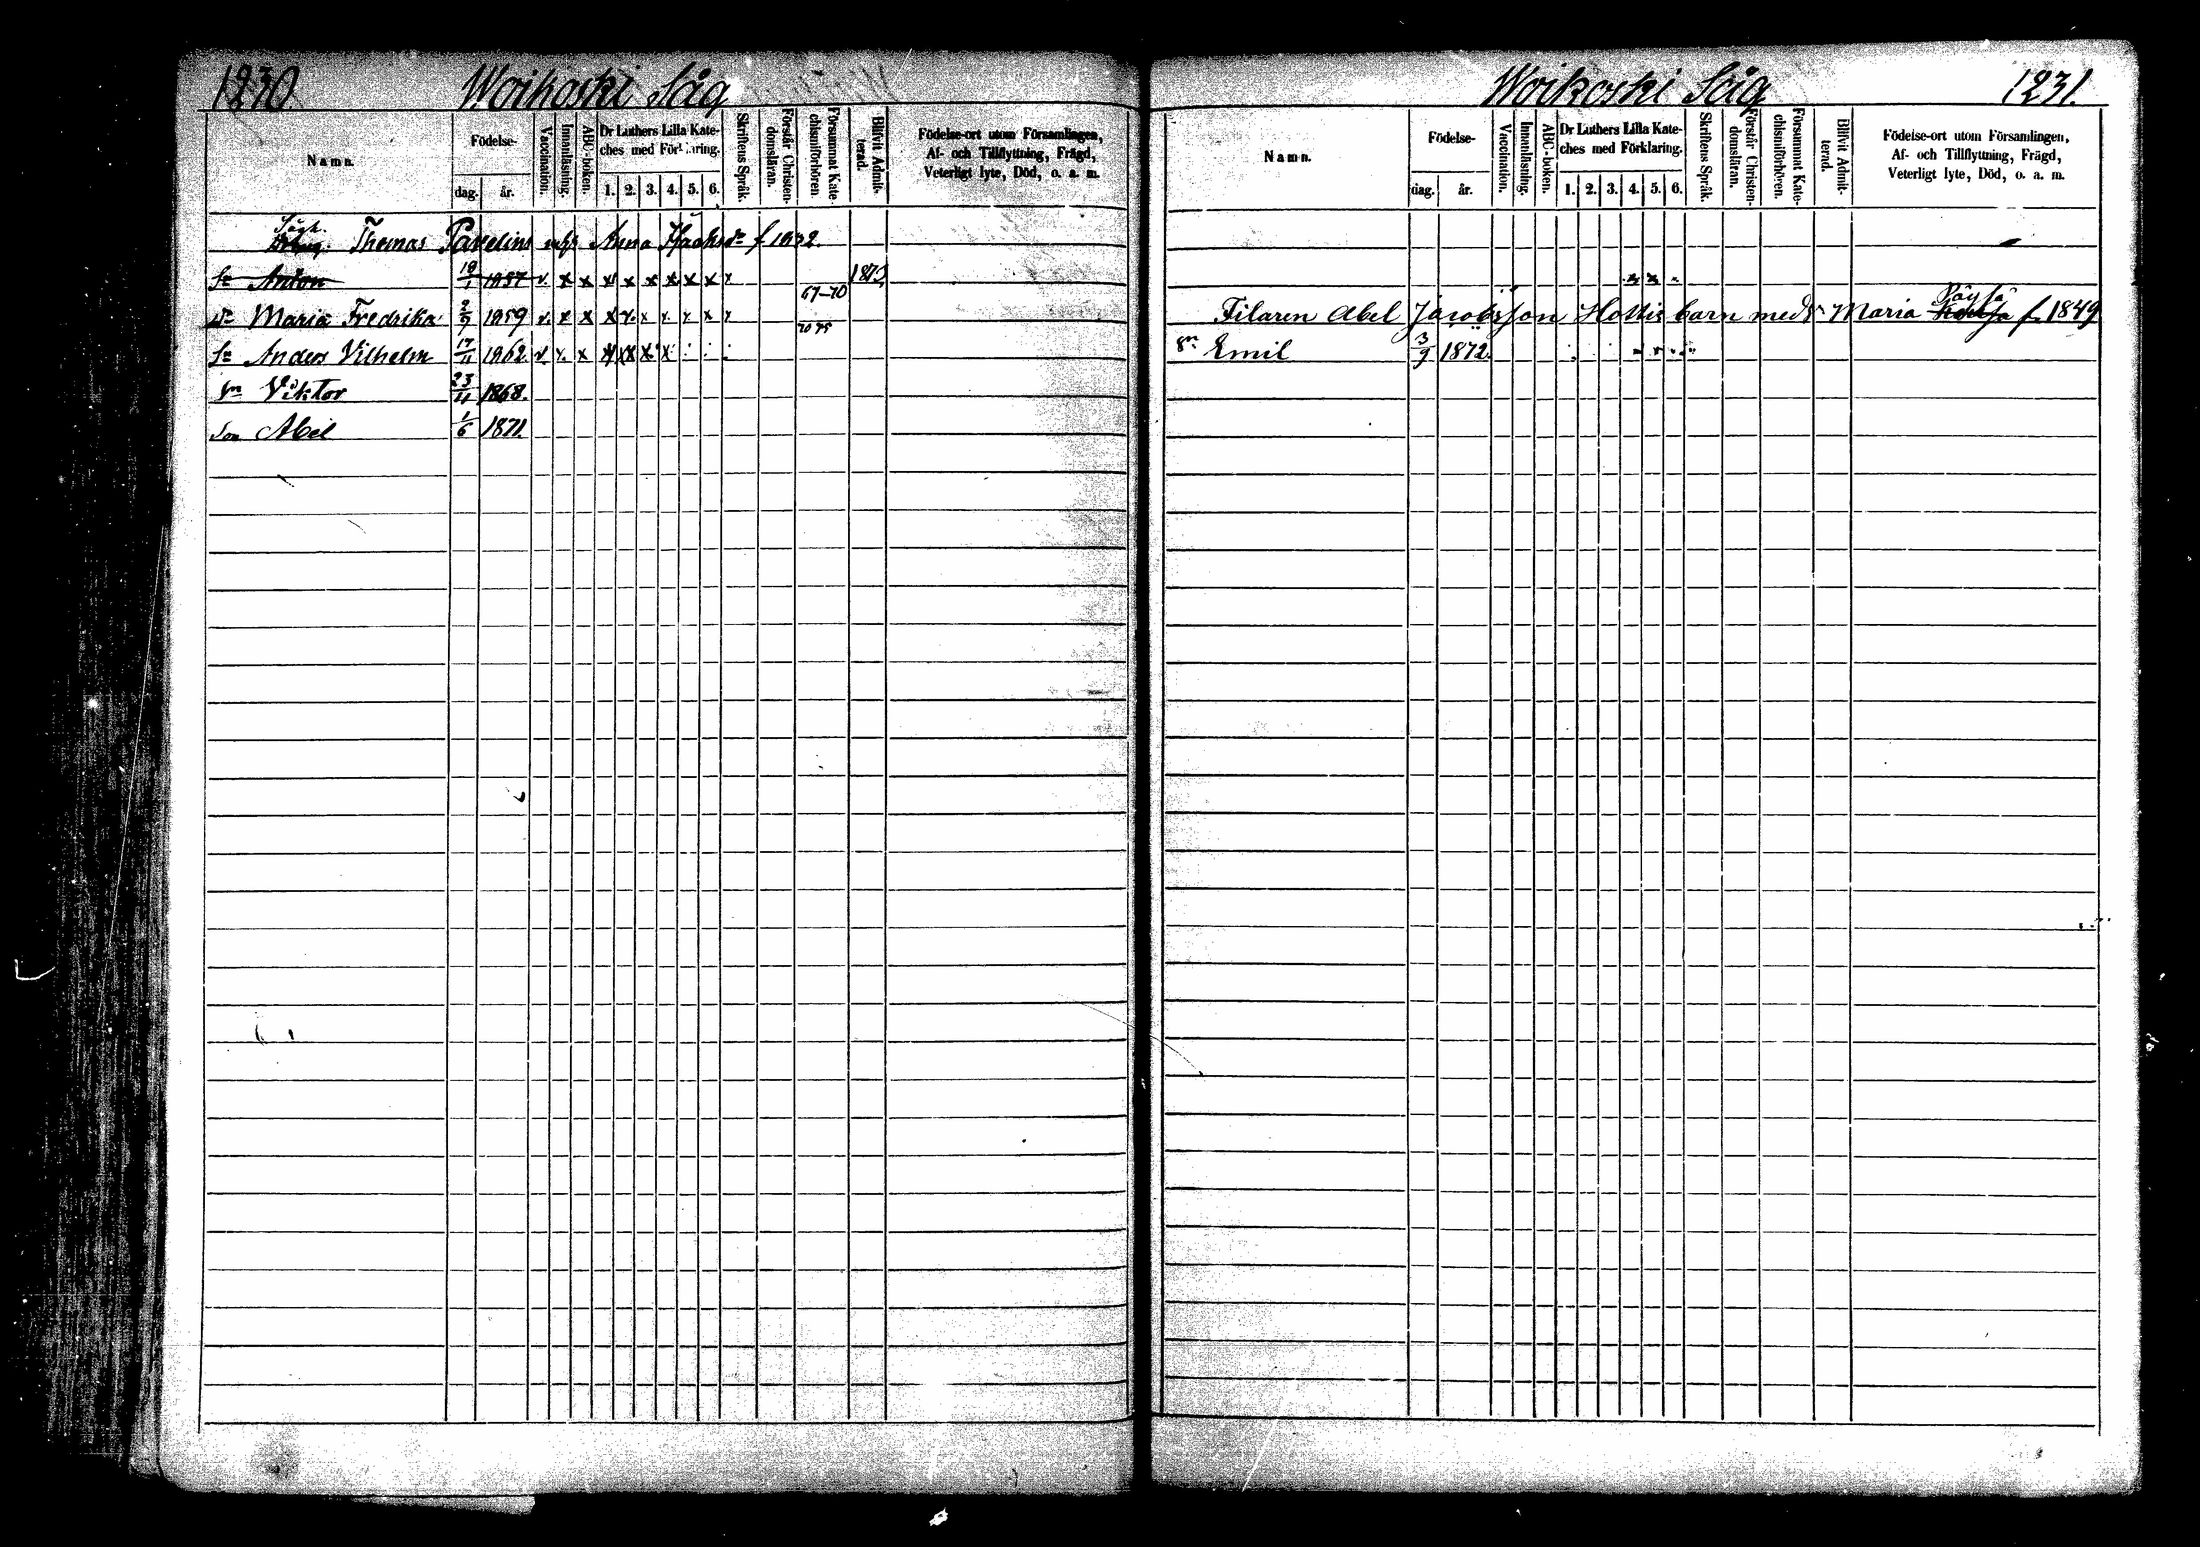 1230 Woikoski Såg
Namn.
Födelse-
dag. år.
Vaccination.
Innanläsning.
ABC-boken.
Dr Luthers Lilla Kateches med Förklaring.
1. 2. 3. 4. 5. 6.
Skriftens Språk.
Förstår Christendomsläran.
Försummat Katechismiförhören.
Blifvit Admitterad.
Födelse-ort utom Församlingen,
Af- och Tillflyttning, Frägd,
Veterligt lyte, Död, o. a. m.
Thomas Pavelius Anna f 1832.
Sn Anton 19/1 1857 v. x x x x x x x x x 1873
67-70
Dr Maria Fredrika 2/9 1859 v. x x x x x x x x x
70 75
Sn Anders Vilhelm 17/11 1862 v x x x x x x
Sn Viktor 23/11 1868.
Son Abel 1/6 1871.
Woikoski Såg 1231.
Namn.
Födelse-
dag. år.
Vaccination.
Innanläsning.
ABC-boken.
Dr Luthers Lilla Kateches med Förklaring.
1. 2. 3. 4. 5. 6.
Skriftens Språk.
Förstår Christendomsläran.
Försummat Katechismiförhören.
Blifvit Admitterad.
Födelse-ort utom Församlingen,
Af- och Tillflyttning, Frägd,
Veterligt lyte, Död, o. a. m.
Filaren Abel Jacobsson Hottis barn med Maria f. 1849
Sn Emil 3/9 1872.